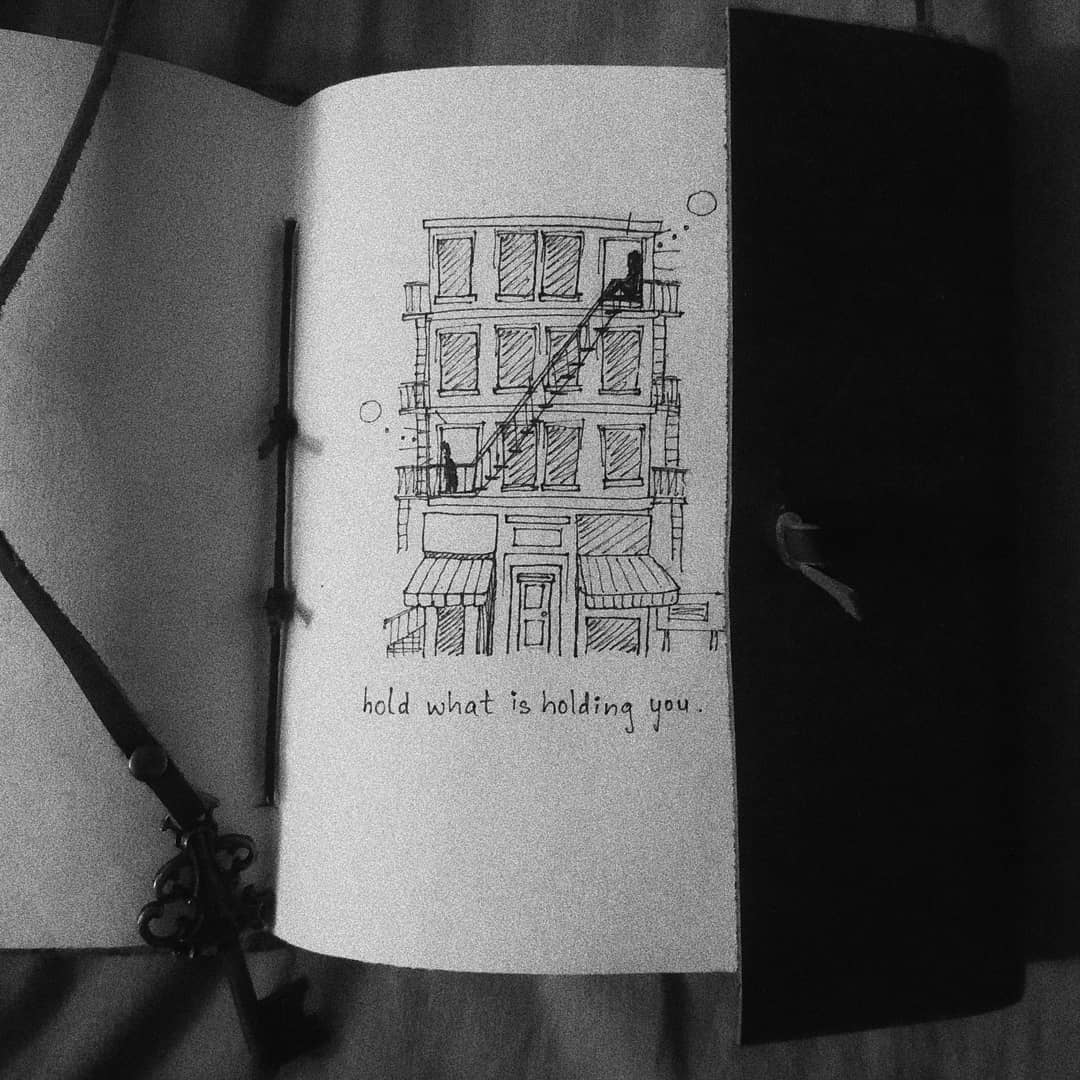 hold what is holding you.